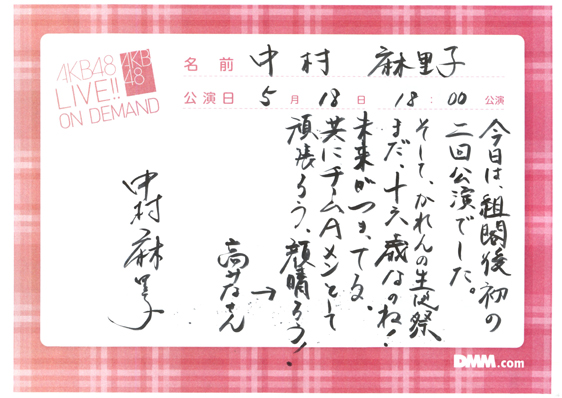 AKB48
LIVE!!
ON DEMAND
AKB
48
名前 中村 麻里子
公演日 5月18日 18:00 公演
今日は、組閣後初の
二回公演でした。
そして、かれんの生誕祭
まだ、十六歳なのね!
未来がつまってる。
共にチームAメンとして
頑張ろう、顔晴ろう!
→
高芽さん
中村麻里子
DMM.com